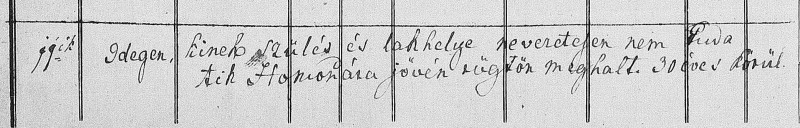 jjik Idegen, kinek szülés és lakhelye neveretesen nem tuda
tik Homonára jövén rügtön meghalt. 30 éves körül.